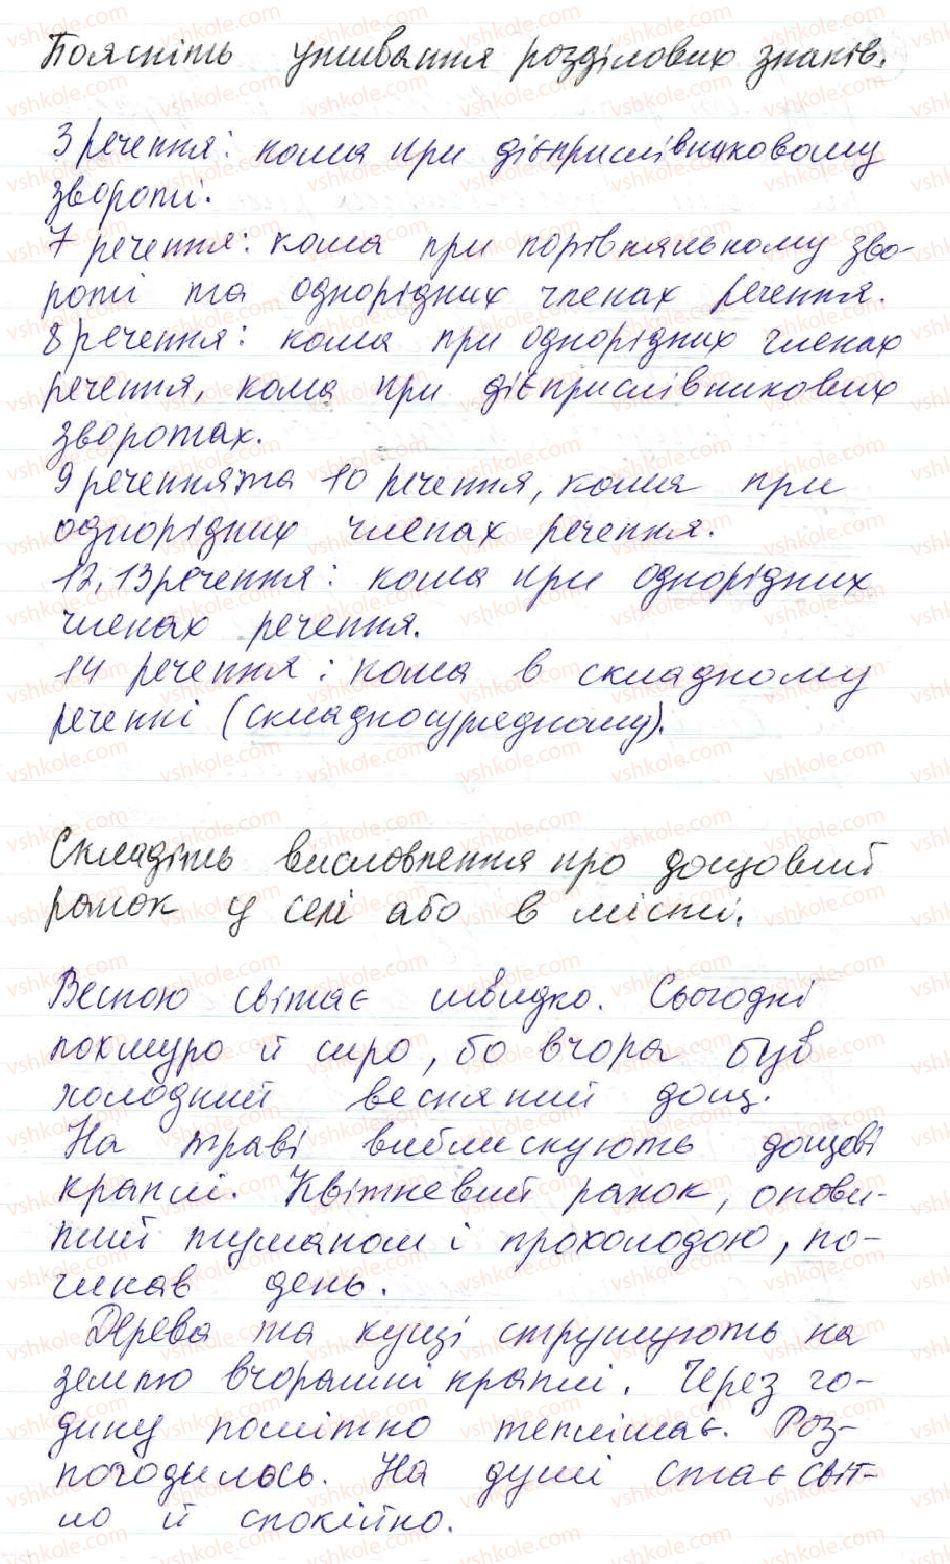 Поясніть уживання розділових знаків.
3 речення: кома при дієприслівниковому
звороті.
7 речення: кома при порівняльному зво-
роті та однорідних членах речення.
8 речення: кома при однорідних членах
речення, кома при дієприслівникових
зворотах.
9 речення та 10 речення, кома при
однорідних членах речення.
12, 13 речення: кома при однорідних
членах речення.
14 речення: кома в складному
реченні (складносурядному).
Складіть висловлення про дощовий
ранок у селі або в місті.
Весною світає швидко. Сьогодні
похмуро й сиро, бо вчора був
холодний весняний дощ.
На траві виблискують дощеві
краплі. Квітневий ранок, опови-
тий туманом і прохолодою, по-
чинав день.
Дерева та кущі струшують на
землю вчорашні краплі. Через го-
дину помітно теплішає. Роз-
погодилось. На душі стає світ-
ло й спокійно.